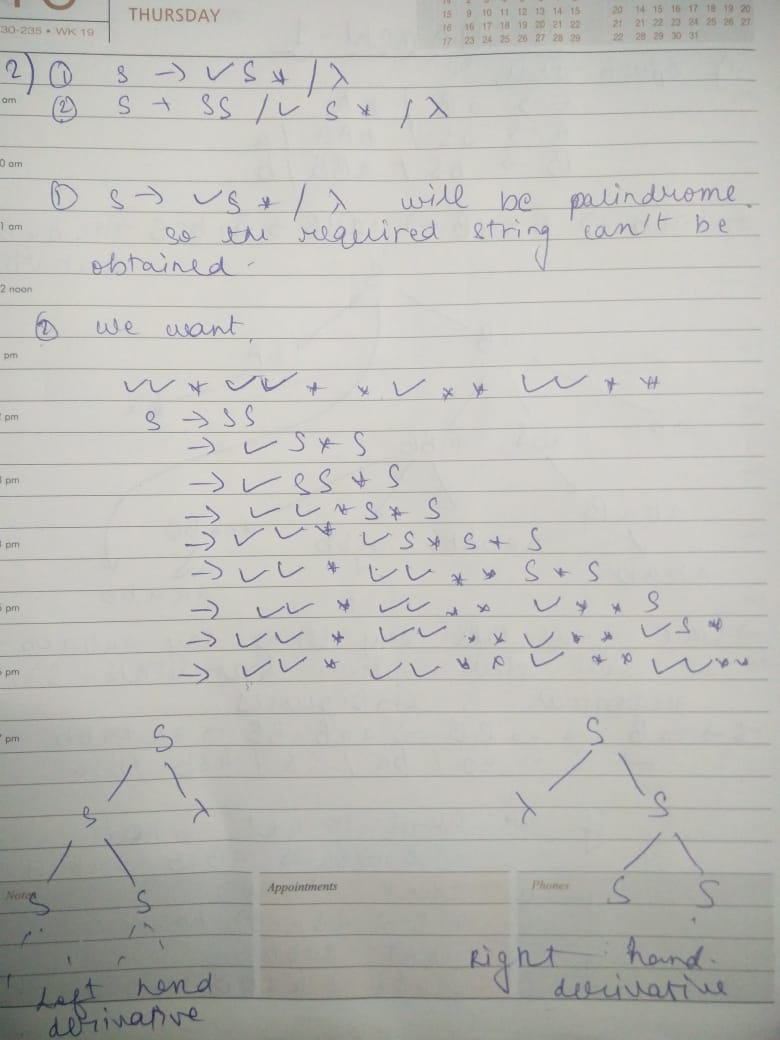 THURSDAY
30-235 • WK 19
15 9 10 11 12 13 14 15
16 16 17 18 19 20 21 22
17 23 24 25 26 27 28 29
20 14 15 16 17 18 19 20
21 21 22 23 24 25 26 27
22 28 29 30 31
2) ① S → ✓ S * / λ
am
② S → SS / ✓ S * / λ
0 am
① S → ✓ S * / λ will be palindrome.
1 am
so the required string can't be
obtained.
2 noon
② we want,
pm
✓✓ * ✓✓ * * ✓ * * ✓✓ * *
pm
S → SS
→ ✓ S * S
pm
→ ✓ SS * S
→ ✓ ✓ * S * S
pm
→ ✓ ✓ * ✓ S * S * S
→ ✓✓ * ✓✓ * * S * S
pm
→ ✓✓ * ✓✓ * * ✓ * * S
→ ✓✓ * ✓✓ * * ✓ * * ✓ S *
pm
→ ✓✓ * ✓✓ * * ✓ * * ✓✓ * *
pm
S
S λ
S S
Left hend
derivative
S
λ S
S S
Right hand.
derivative
Notes
Appointments
Phones